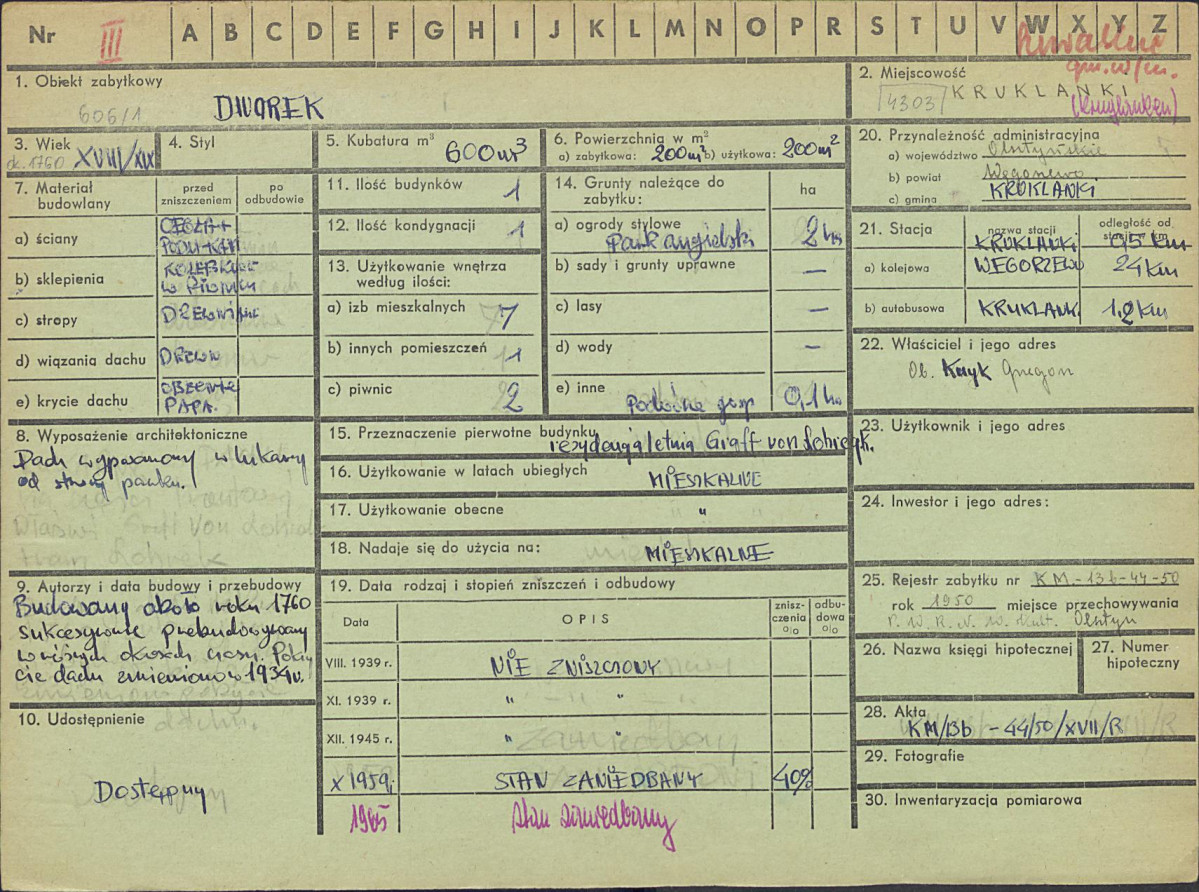 Nr III A B C D E F G H I J K L M N O P R S T U V W X Y Z
gm. w/m.
1. Obiekt zabytkowy
606/1 DWOREK
2. Miejscowość
4303 KRUKLANKI
3. Wiek
ok. 1760 XVIII/XIX
4. Styl
5. Kubatura m³
600m³
6. Powierzchnia w m²
a) zabytkowa: 200m² b) użytkowa: 200m²
20. Przynależność administracyjna
a) województwo Olsztyńskie
b) powiat Węgorzewo
c) gmina KRUKLANKI
7. Materiał budowlany
przed zniszczeniem
po odbudowie
a) ściany CEGŁA +
b) sklepienia
w Piwnicy
c) stropy
d) wiązania dachu DREWN
e) krycie dachu OBECNIE
PAPA.
11. Ilość budynków 1
12. Ilość kondygnacji 1
13. Użytkowanie wnętrza
według ilości:
a) izb mieszkalnych 7
b) innych pomieszczeń 1
c) piwnic 2
14. Grunty należące do
zabytku:
ha
a) ogrody stylowe
Park angielski 2 ha
b) sady i grunty uprawne —
c) lasy —
d) wody —
e) inne
gosp 0,1 ha
21. Stacja
nazwa stacji
odległość od
stacji w km
KRUKLANKI 0,5 km
a) kolejowa WĘGORZEWO 24 km
b) autobusowa KRUKLANK. 1,2 km
22. Właściciel i jego adres
Ob. Gregon
8. Wyposażenie architektoniczne
Dach
od strony parku.
15. Przeznaczenie pierwotne budynku
rezydencja letnia Graff von
16. Użytkowanie w latach ubiegłych
MIESZKALNE
17. Użytkowanie obecne " "
18. Nadaje się do użycia na: MIESZKALNE
23. Użytkownik i jego adres
24. Inwestor i jego adres:
9. Autorzy i data budowy i przebudowy
Budowany około roku 1760
sukcesywnie przebudowywany
w różnych okresach czasu. Pokry
cie dachu zmieniono w 1934 r.
19. Data rodzaj i stopień zniszczeń i odbudowy
Data
OPIS
znisz-
czenia
%
odbu-
dowa
%
VIII. 1939 r. NIE ZNISZCZONY
XI. 1939 r. " "
XII. 1945 r. " "
X 1959 r. STAN ZANIEDBANY 40%
1965 stan zaniedbany
10. Udostępnienie
Dostępny
25. Rejestr zabytku nr KM-13b-44-50
rok 1950 miejsce przechowywania
P. W. R. N. W. Kult. Olsztyn
26. Nazwa księgi hipotecznej
27. Numer
hipoteczny
28. Akta
KM/13b - 44/50/XVII/R
29. Fotografie
30. Inwentaryzacja pomiarowa